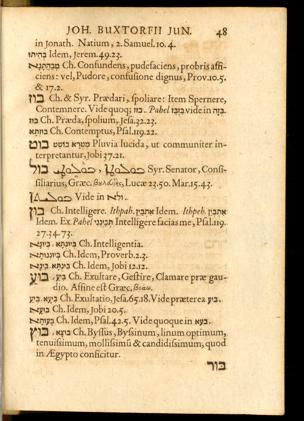 JOH. BUXTORFII JUN. 48
in Jonath. Natium, 2. Samuel. 10. 4.
Idem, Jerem. 49. 23.
Ch. Confundens, pudefaciens, probris affi-
ciens: vel, Pudore, confusione dignus, Prov. 10. 5.
& 17. 2.
בוז Ch. & Syr. Prædari, spoliare: Item Spernere,
Contemnere. Vide quoq; בזז. Pahel vide in בזה.
בוז Ch. Præda, spolium, Jesa. 32. 23.
בוזא Ch. Contemptus, Psal. 119. 22.
בוט Pluvia lucida, ut communiter in-
terpretantur, Jobi 37. 21.
בול Syr. Senator, Consi-
siliarius, Græc. βουλευτὴς, Luc. 23. 50. Mar. 15. 43.
Vide in
בון Ch. Intelligere. Ithpah. אתבין Idem. Ithpeh. אתבין
Idem. Ex Pahel Intelligere facias me, Psal. 119.
27. 34. 73.
בינא, בינתא Ch. Intelligentia.
Ch. Idem, Proverb. 2. 3.
Ch. Idem, Jobi 12. 12.
בוע, ביע Ch. Exultare, Gestire, Clamare præ gau-
dio. Affine est Græc. βοάω.
ביע Ch. Exultatio, Jesa. 65. 18. Vide præterea ביע.
בועא Ch. Idem, Jobi 20. 5.
Ch. Idem, Psal. 42. 5. Vide quoque in בעא.
בוץ, בוצא Ch. Byssus, Byssinum, linum optimum,
tenuissimum, mollissimū & candidissimum, quod
in Ægypto conficitur.
בור